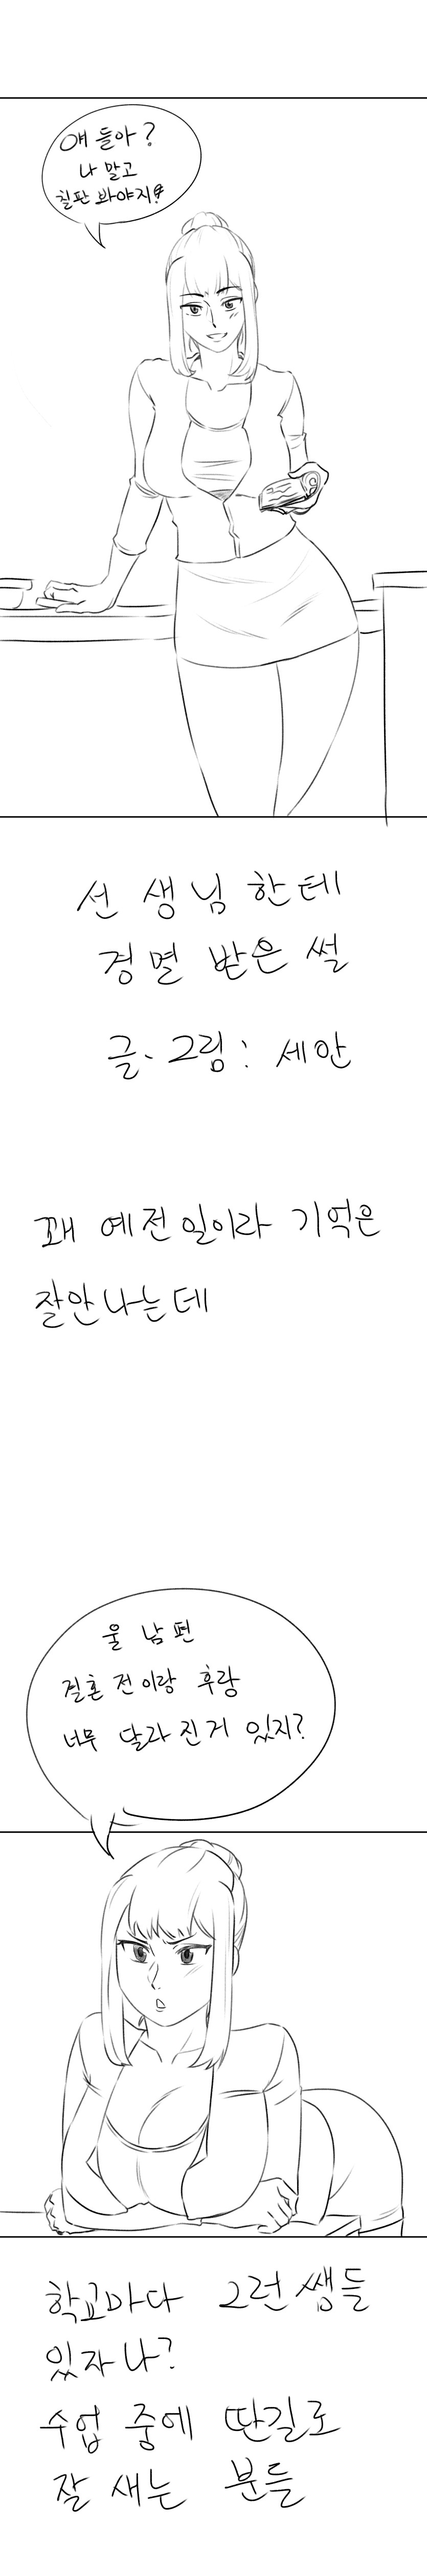 얘들아?
나 말고
칠판 봐야지?
선생님한테
경멸 받은 썰
글·그림: 세안
꽤 예전일이라 기억은
잘안나는데
울 남편
결혼 전이랑 후랑
너무 달라진거 있지?
학교마다 그런 쌤들
있자나?
수업 중에 딴길로
잘 새는 분들